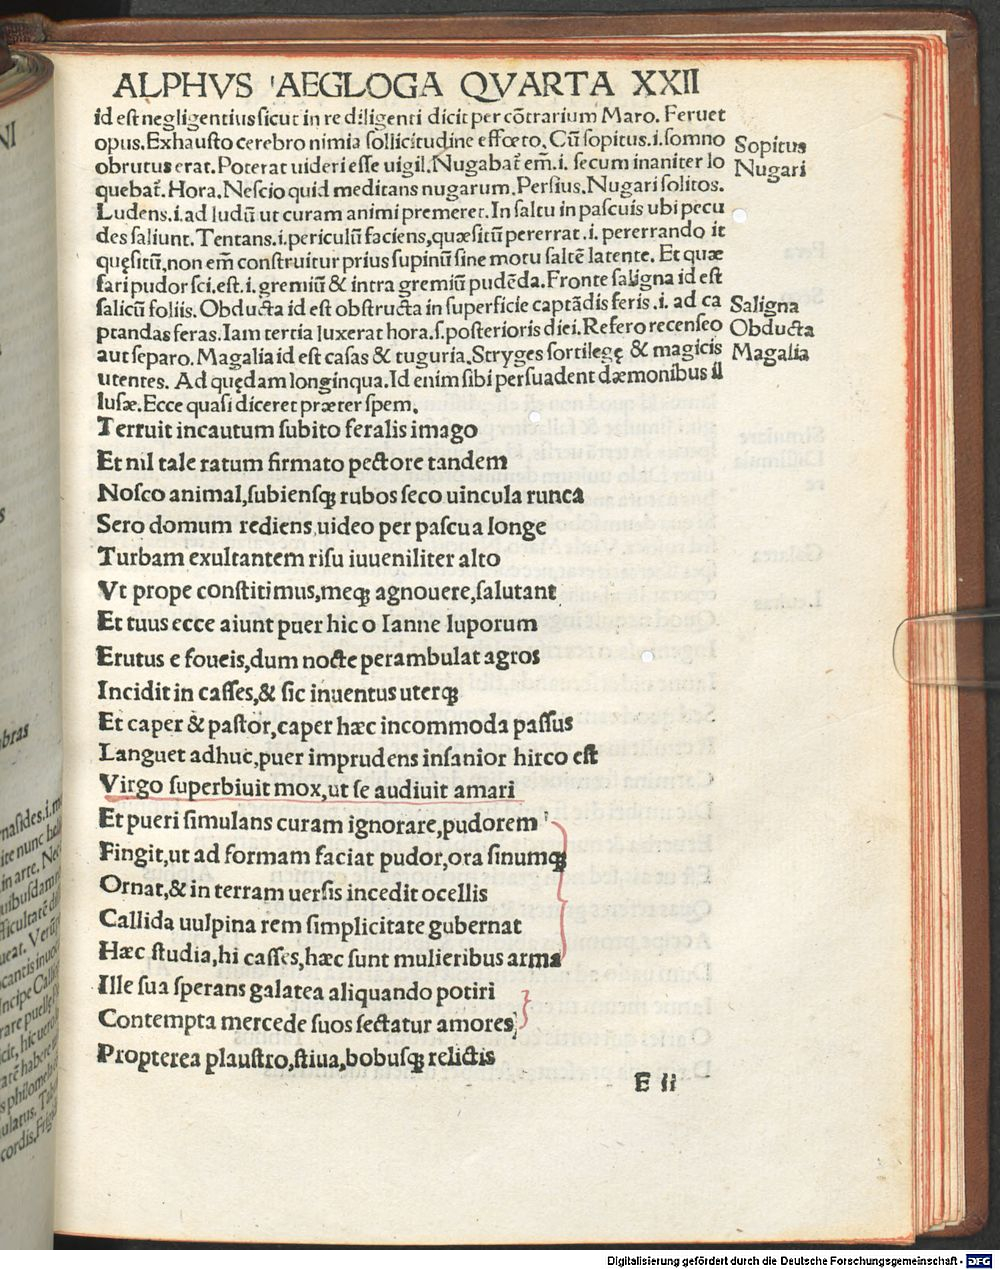 ALPHVS AEGLOGA QVARTA XXII
id est negligentius sicut in re diligenti dicit per cõtrarium Maro. Feruet
opus. Exhausto cerebro nimia sollicitudine effœto. Cũ sopitus .i. somno
obrutus erat. Poterat uideri esse uigil. Nugabat̃ em̃ .i. secum inaniter lo
quebat̃. Hora. Nescio quid meditans nugarum. Persius. Nugari solitos.
Ludens .i. ad ludũ ut curam animi premeret. In saltu in pascuis ubi pecu
des saliunt. Tentans .i. periculũ faciens, quæsitũ pererrat .i. pererrando it
quęsitũ, non em̃ construitur prius supinũ sine motu saltẽ latente. Et quæ
fari pudor sci. est .i. gremiũ & intra gremiũ pudẽda. Fronte saligna id est
salicũ foliis. Obducta id est obstructa in superficie captãdis feris .i. ad ca
ptandas feras. Iam tertia luxerat hora .s. posterioris diei. Refero recenseo
aut separo. Magalia id est casas & tuguria. Stryges sortilegę & magicis
utentes. Ad quędam longinqua. Id enim sibi persuadent dæmonibus il
lusæ. Ecce quasi diceret præter spem.
Sopitus
Nugari
Saligna
Obducta
Magalia
Terruit incautum subito feralis imago
Et nil tale ratum firmato pectore tandem
Nosco animal, subiensqꝫ rubos seco uincula runca
Sero domum rediens, uideo per pascua longe
Turbam exultantem risu iuueniliter alto
Vt prope constitimus, meqꝫ agnouere, salutant
Et tuus ecce aiunt puer hic o Ianne luporum
Erutus e foueis, dum nocte perambulat agros
Incidit in casses, & sic inuentus uterqꝫ
Et caper & pastor, caper hæc incommoda passus
Languet adhuc, puer imprudens insanior hirco est
Virgo superbiuit mox, ut se audiuit amari
Et pueri simulans curam ignorare, pudorem
Fingit, ut ad formam faciat pudor, ora sinumqꝫ
Ornat, & in terram uersis incedit ocellis
Callida uulpina rem simplicitate gubernat
Hæc studia, hi casses, hæc sunt mulieribus arma
Ille sua sperans galatea aliquando potiri
Contempta mercede suos sectatur amores
Propterea plaustro, stiua, bobusqꝫ relictis
E ii
Digitalisierung gefördert durch die Deutsche Forschungsgemeinschaft - DFG